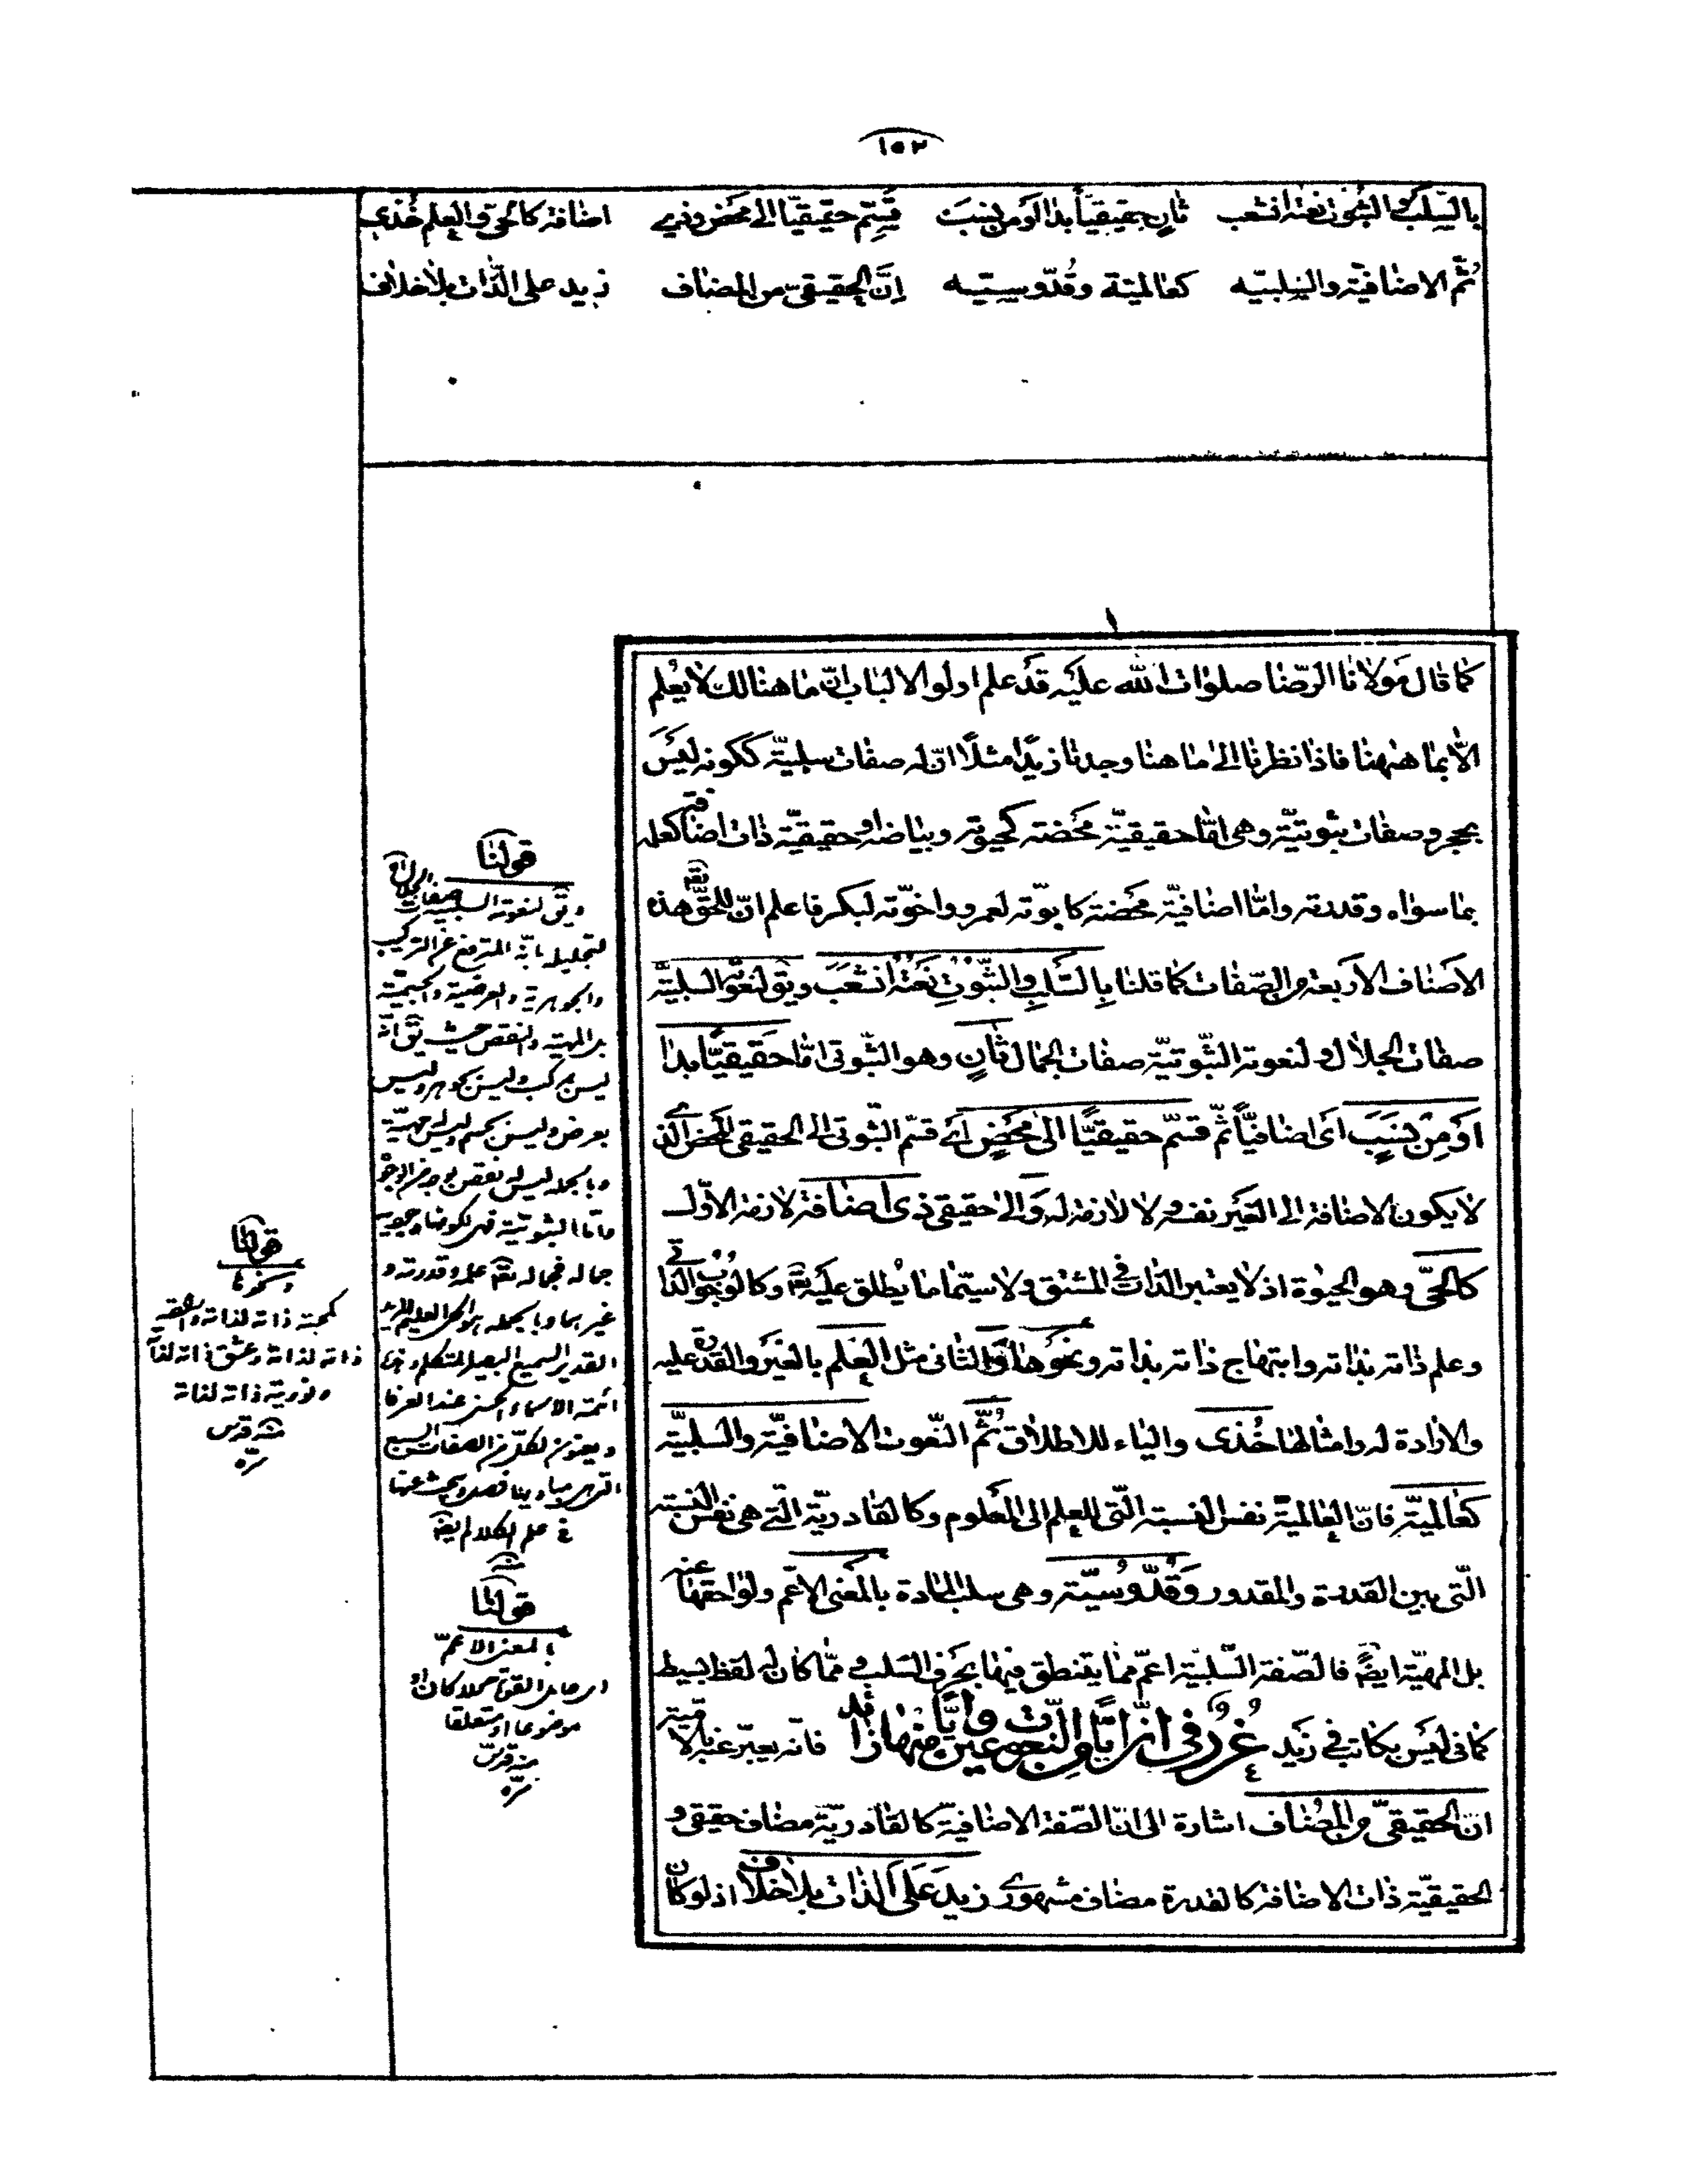 ١٥٢
بالسّلب والثبوت نعته انشعب ثانٍ حقيقيّاً بدا او من نسب قسّم حقيقيّا الى محض وذى اضافة كالحىّ والعلم خُذى
ثُمّ الاضافيّة والسلبيّه كعالميّة وقُدّوسيّه انّ الحقيقىّ من المضاف زيد على الذّات بلا خلاف
كما قال مولانا الرّضا صلوات الله عليه قد علم اولو الالباب انّ ما هنالك لا يعلم
الّا بما هٰهنا فاذا نظرنا الى ما هنا وجدنا زيدًا مثلًا انّ له صفات سلبيّة ككونه ليس
بحجر وصفات ثبوتيّة وهى امّا حقيقيّة محضة كحيوته وبياضه او حقيقيّة ذات اضافة كعلمه
بما سواه وقدرته وامّا اضافيّة محضة كابوّته لعمرو واخوّته لبكر فاعلم انّ للحقّ تعم هذه
الاصناف الاربعة من الصّفات كما قلنا بالسّلب والثّبوت نعته انشعب ويق لنعوته السلبيّة
صفات الجلال ولنعوته الثّبوتيّة صفات الجمال ثانٍ وهو الثّبوتى امّا حقيقيّاً بدا
او من نسب اى اضافيّاً ثمّ قسّم حقيقيًّا الى محض اى قسّم الثّبوتى الى الحقيقى المحض الذى
لا يكون الاضافة الى الغير نفسه ولا لازمة له والى حقيقى ذى اضافة لازمة الاوّل
كالحىّ وهو الحيوة اذ لا يعتبر الذات فى المشتق ولا سيّما ما يُطلق عليه تعم وكالوجوب الذاتى
وعلم ذاته بذاته وابتهاج ذاته بذاته ونحوها والثانى مثل العلم بالغير والقدرة عليه
والارادة له وامثالها خُذى والياء للاطلاق ثُمّ النّعوت الاضافيّة والسلبيّة
كعالميّة فانّ العالميّة نفس النسبة الّتى للعلم الى المعلوم وكالقادريّة الّتى هى نفس النسبة
الّتى بين القدرة والمقدور وقُدّوسيّة وهى سلب المادة بالمعنى الاعّم ولواحقها عنه
بل المهيّة ايضً فالصّفة السّلبيّة اعمّ مما يتنطق فيها بحرف السّلب وممّا كان له لفظ بسيط
كما فى ليس بكاتب فى زيد غُررٌ فى انّ ايّا من النعوت عين وايّا منها زائد فانّه يعبّر عنه بالامّية
انّ الحقيقىّ من المضاف اشارة الى انّ الصّفة الاضافيّة كالقادريّة مضاف حقيقى و
الحقيقيّة ذات الاضافة كالقدرة مضاف مشهورى زيد على الذات بلا خلاف اذ لو كان
قولنا
ويق لنعوته السلبيّة صفات الجلال
لتجليله بانّه المترفع عن التركيب
والجوهرية والعرضية والجسمية
بل المهية والنقص حيث يق انّه
ليس بمركب وليس بجوهر وليس
بعرض وليس بجسم وليس له مهيّة
وبالجمله ليس له نقص
وامّا الثبوتيّة فهى لكونها
جماله فجماله تعم علمه وقدرته و
غيرهما وبالجمله هو الحى العليم المريد
القدير السميع البصير المتكلم وهذه
ائمّة الاسماء الحسنى عند العرفا
فى علم الكلام ايضً
منه
قولنا
بالمعنى الاعمّ
اى حامل القوة محلا كان او
موضوعا او متعلقا
منه قدّس
سرّه
قولنا
ونحوها
كمحبّة ذاته لذاته
ذاته لذاته وعشق ذاته لذاته
ونورية ذاته لذاته
منه قدّس
سرّه